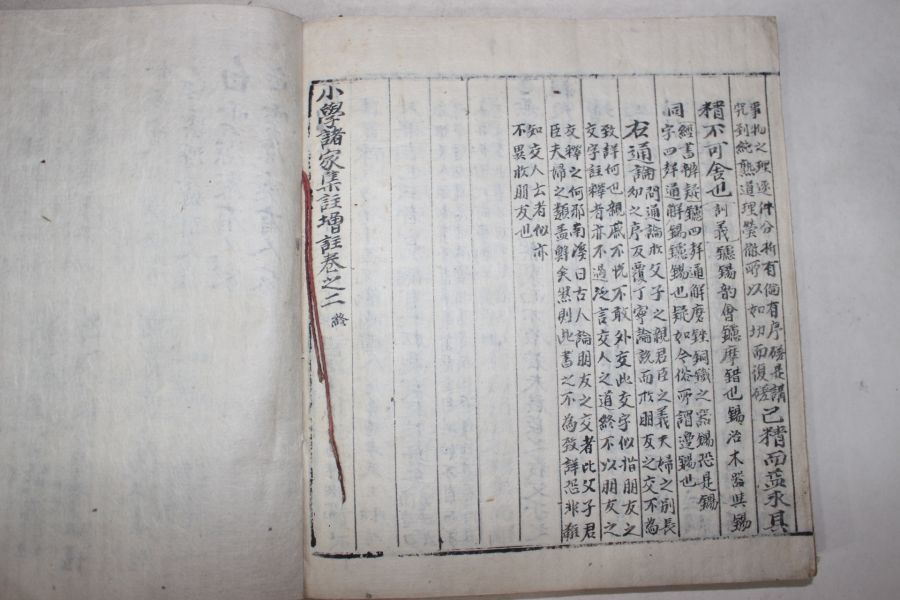 事物之理逐件分析有倫有序磋是講
究到純熟道理瑩徹所以如切而復磋
己精而益求其
精不可舍也
訓義鑢鐋韵會鑢摩錯也鐋治木器與鐋
經書辨疑鑢四聲通解磨銼銅鐵之器鐋恐是鐋
同字四聲通解鐋鑢鐋也疑如今俗所謂邊鐋也
右通論
問通論於父子之親君臣之義夫婦之別長
幼之序反覆丁寧論說而於朋友之交不為
致詳何也親戚不悅不敢外交此交字似指朋友之
交字註釋者亦不過泛言交人之道終不以朋友之
交釋之何耶南溪曰古人論朋友之交者比父子君
臣夫婦之類盖尠矣然則此書之不為致詳恐非難
知交人云者似亦
不異於朋友也
小學諸家集註增註卷之二 終